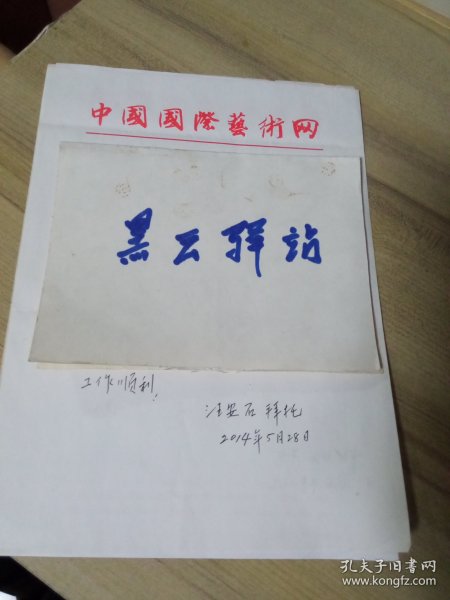 中國國際藝術网
黑云驿站
工作顺利!
汪安石 拜托
2014年5月28日
孔夫子旧书网
www.kongfz.com